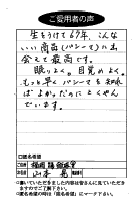 ご愛用者の声
生をうけて67年、こんな
いい商品(パシーマ)に出
会えて最高です。
眠りよく。目覚めよく。
もっと早くパシーマを知れ
ばよかったのにとくやん
でいます。
□匿名希望
ご住所 福岡県
ご氏名 山本
○書いていただきました内容は皆さんに見ていただき
ますのでご了解下さい。
○匿名希望の時は「匿名希望」にマーク下さい。